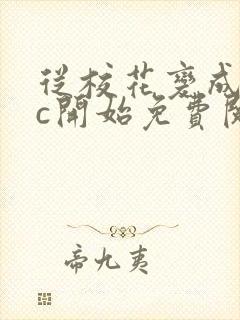 從校花變成
c開始免費閱
帝九夷